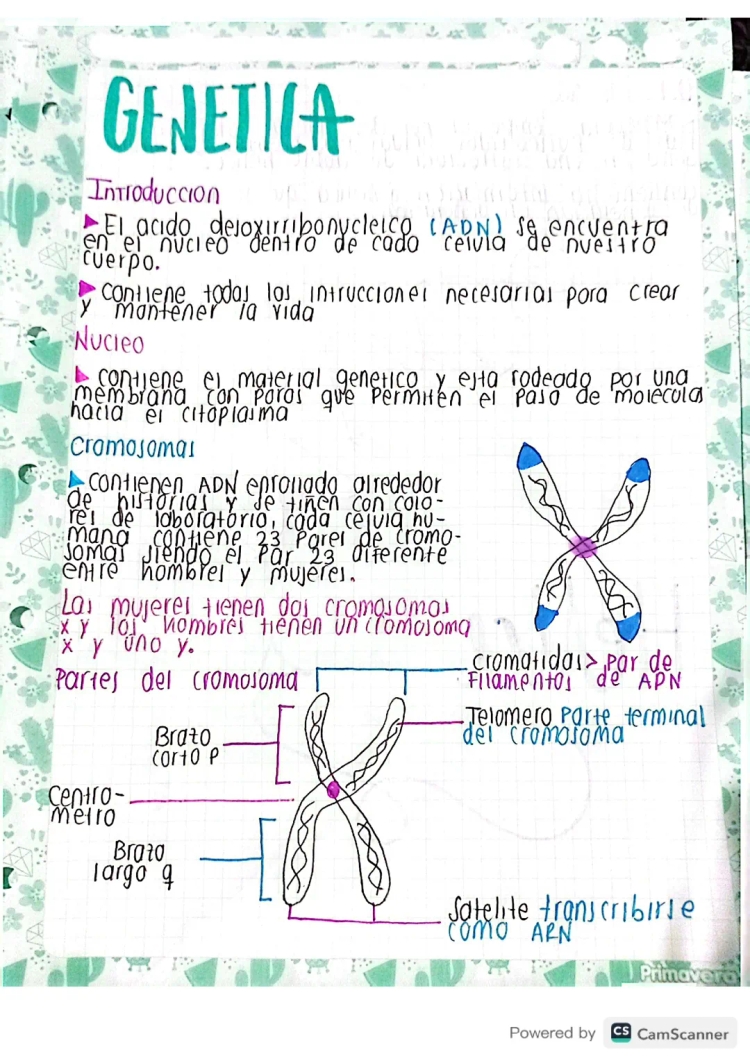 GENETICA
Introduccion
El acido desoxirribonucleico (ADN) se encuentra
en el nucleo dentro de cada celula de nuestro
cuerpo.
Contiene todas las intrucciones necesarias para crear
y mantener la vida
Nucleo
contiene el material genetico y esta rodeado por una
membrana con poros que permiten el paso de molecula
hacia el citoplasma
Cromosomas
contienen ADN enrollado alrededor
de historias y se tiñen con colo-
res de laboratorio, cada celula hu-
mana contiene 23 pares de cromo-
somas siendo el par 23 diferente
entre hombres y mujeres.
Las mujeres tienen dos cromosomas
x y los hombres tienen un cromosoma
x y uno y.
Partes del cromosoma
cromatidas> par de
Filamentos de ADN
Telomero Parte terminal
del cromosoma
Brazo
corto P
Centro-
metro
Brazo
largo q
Satelite transcribirse
como ARN
Primavera
Powered by CS CamScanner